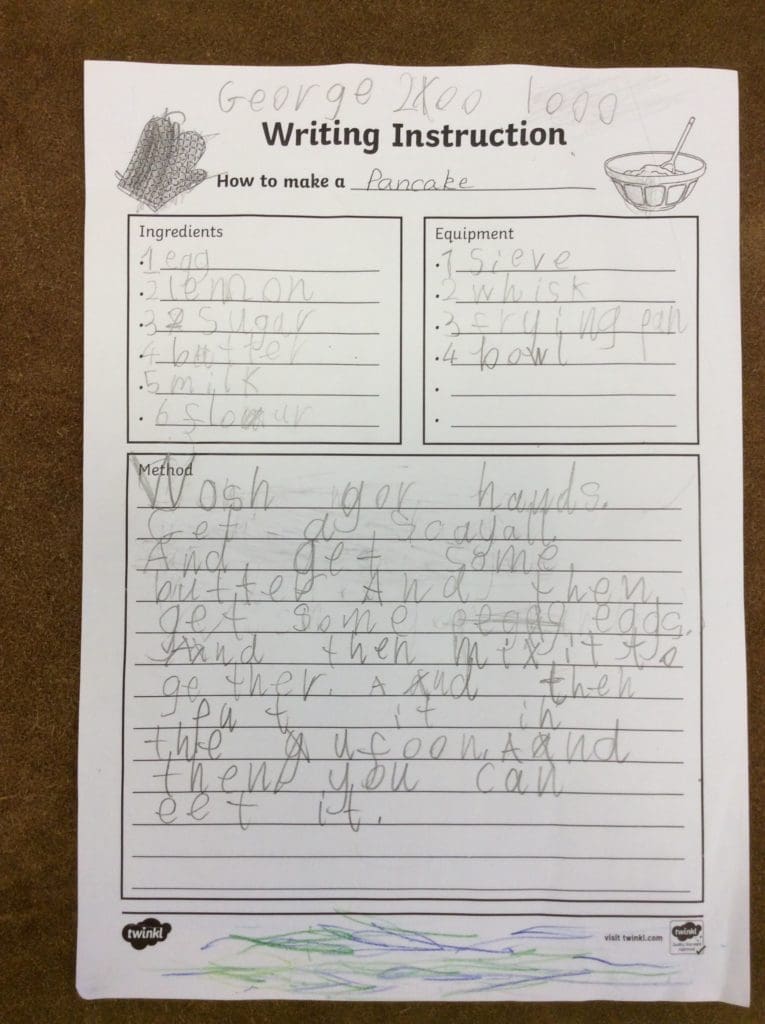 George 2Koo 1000
Writing Instruction
How to make a Pancake
Ingredients
1 egg
2 lemnon
3 sugar
4 butter
5 milk
6 flour
Equipment
1 Sieve
2 whisk
3 frying pan
4 bowl
Method
Wosh yor hands.
Get a
And get some
butter. And then
get some eggs.
And then mix it to
gether. And then
put it in
the ufoon. And
then you can
eet it.
twinkl
visit twinkl.com
twinkl